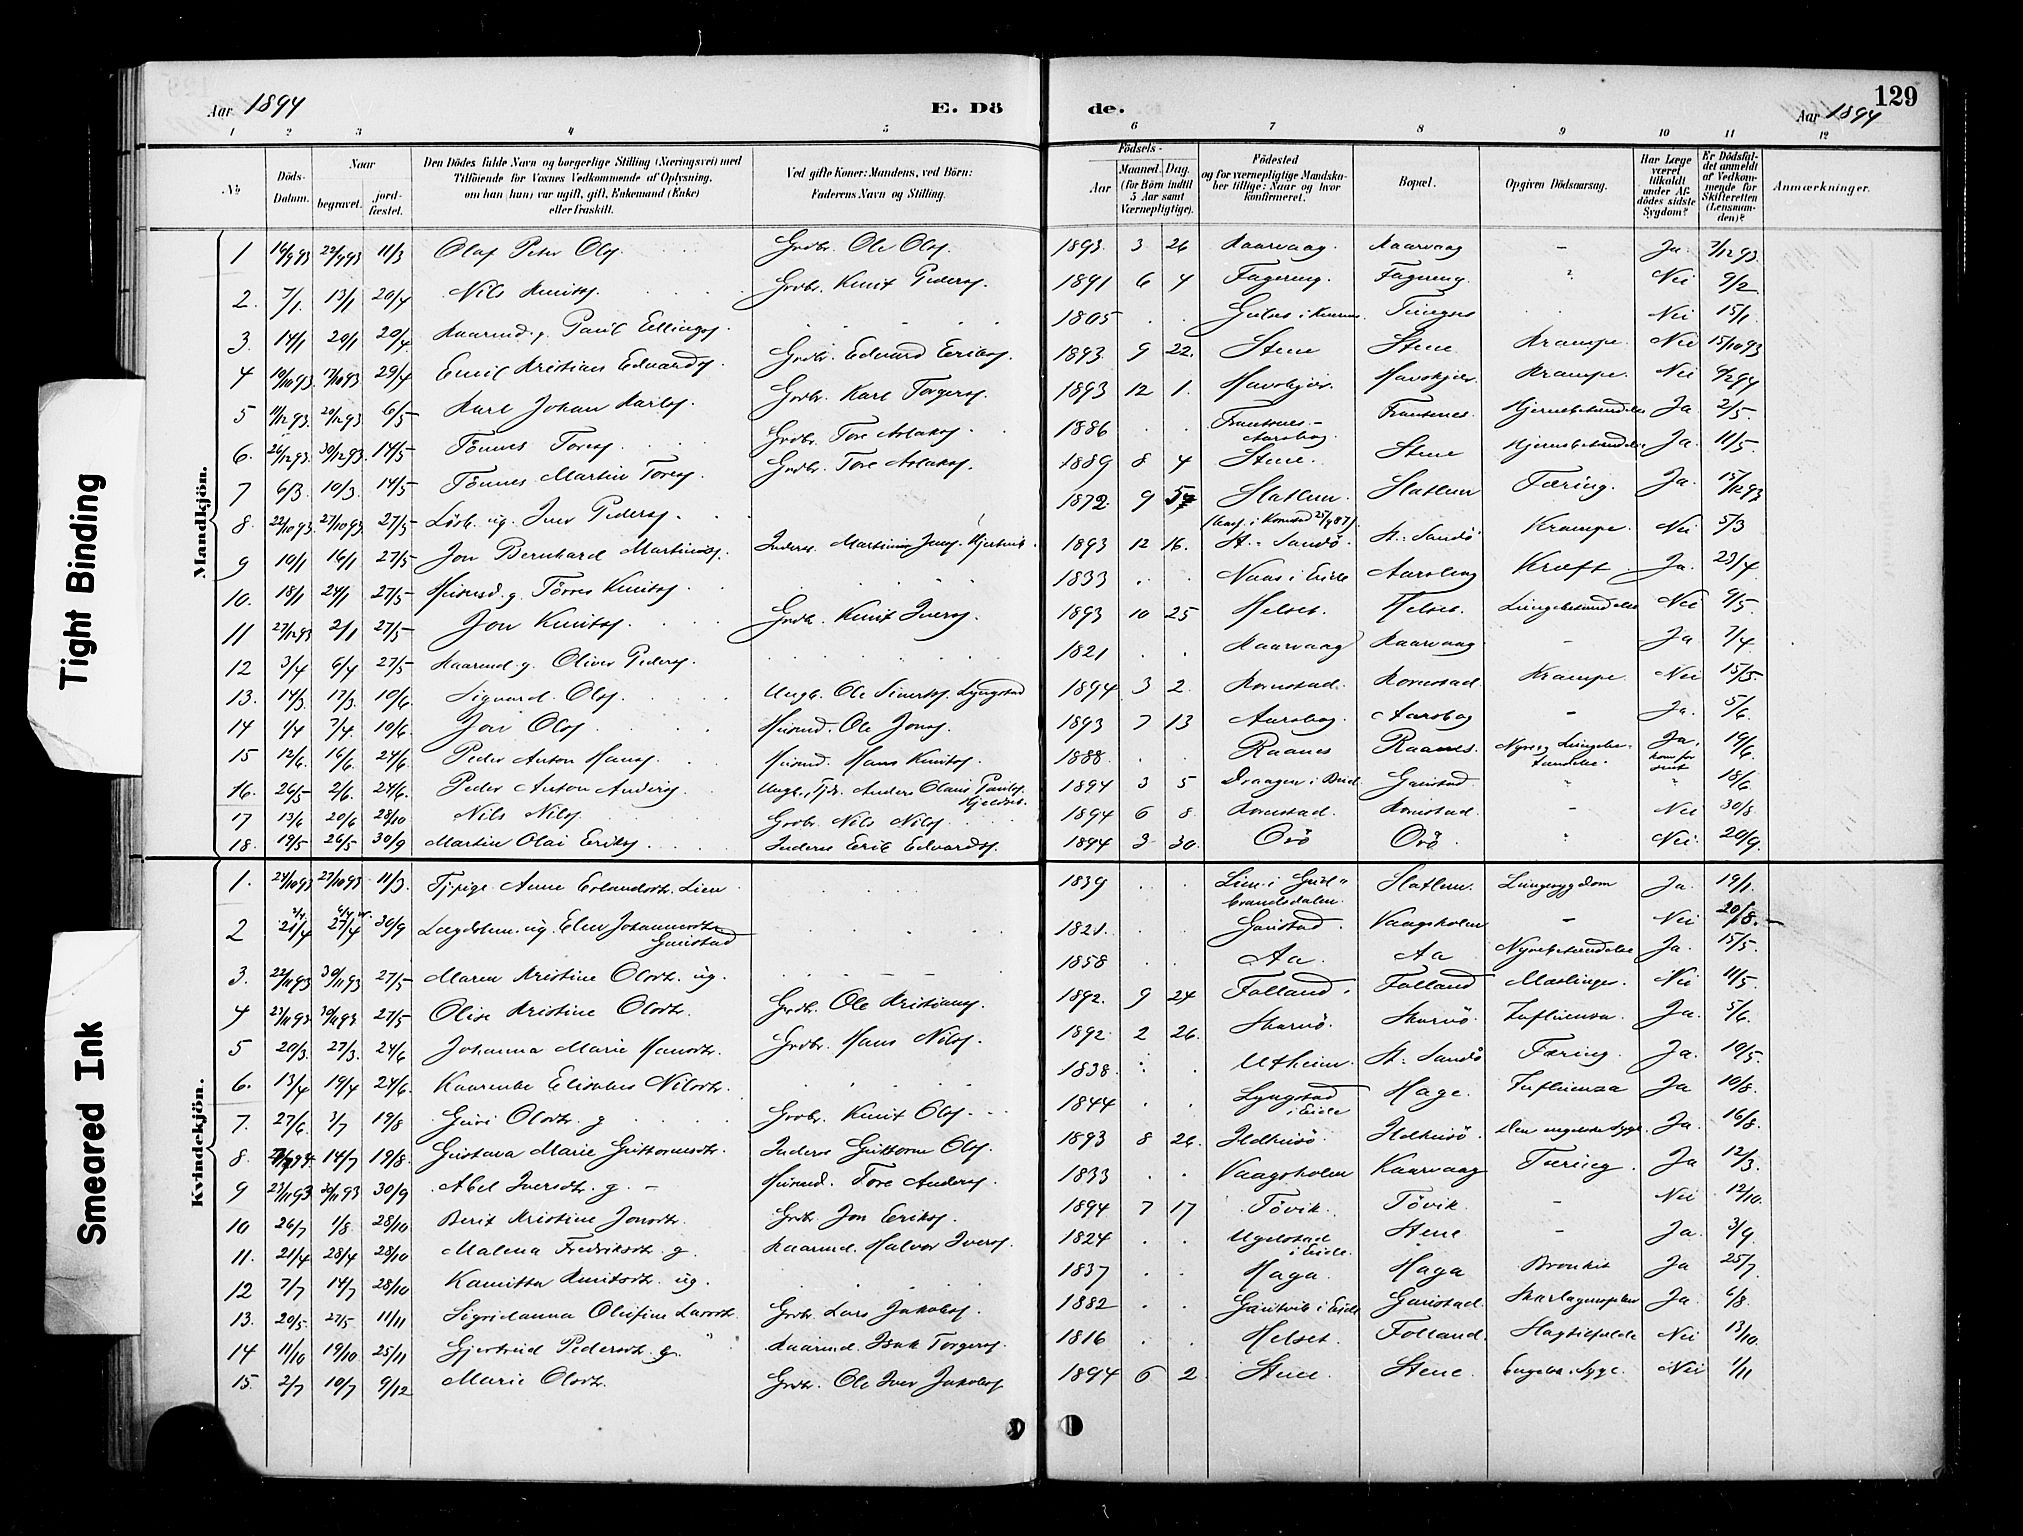 Aar 1894
E. Dö
de.
Aar 1894
129
1 2 3 4 5 6 7 8 9 10 11 12
No
Döds-Datum.
Naar
begravet.
jord-fæstet.
Den Dödes fulde Navn og borgerlige Stilling (Næringsvei) med Tilföiende for Voxnes Vedkommende af Oplysning, om han (hun) var ugift, gift, Enkemand (Enke) eller fraskilt.
Ved gifte Koner: Mandens, ved Börn: Faderens Navn og Stilling.
Födsels-
Aar
Maaned. Dag. (for Börn indtil 5 Aar samt Værnepligtige).
Födested og for værnepligtige Mandskaber tillige: Naar og hvor konfirmeret.
Bopæl.
Opgiven Dödsaarsag.
Har Læge været tilkaldt under Afdödes sidste Sygdom?
Er Dödsfaldet anmeldt af Vedkommende for Skifteretten (Lensmanden)?
Anmærkninger.
Mandkjön.
1 16/9 93 22/9 93 11/3 Olaf Peter Ols. Grdbr. Ole Ols. 1893. 3 26 Kaarvaag. Kaarvaag – Ja. 7/12 93.
2. 7/1. 13/1 20/4 Nils Knuts. Grdbr. Knut Peders. 1891 6 4 Fagereng. Fagereng. " Nei 9/2
3. 14/1 20/1 20/4 Kaarmd. g. Paul Ellings. 1805 Nei 15/1.
4 10/10 93 17/10 93 29/4 Emil Kristian Edvards. Grdbr. Edvard Eriks. 1893. 9 22. Stene Stene Krampe. Nei 15/10 93
5 11/12 93. 20/12 93 6/5 Karl Johan Karls. Grdbr. Karl Torgers. 1893 12 1. Havskjær. Havskjær Krampe. Nei 9/2 94
6. 26/12 93. 30/12 93. 14/5 Tönnes Tores. Grdbr. Tore Aslaks. 1886 Frantsnes. Hjernebetændelse Ja. 2/5.
7 6/3. 10/3. 14/5 Tönnes Martin Tores. Grdbr. Tore Aslaks. 1889 8 4 Stene. Stene Hjernebetændelse Ja. 11/5.
8. 22/10 93. 27/10 93. 27/5 Lösk. ug. Iver Peders. 1872. 9 Slatlem. Slatlem Tæring. Ja. 15/12 93
9 10/1 16/1 27/5 Jon Bernhard Martinus. Inderst Martinus Jens. 1893 12 16. St. Sandö. St. Sandö Krampe. Nei 5/3
10. 18/1 24/1 27/5 Husmd. g. Törres Knuts. 1833 Naas i Eide Aarsbog Kræft. Ja. 23/4
11 27/12 93 2/1 27/5 Jon Knuts. Grdb. Knut Ivers. 1893 10 25 Helset. Helset. Lungebetændelse Nei 9/5.
12 3/4 6/4 27/5 Kaarmd. g. Oliver Peders. 1821 Kaarvaag Kaarvaag – Ja 7/4
13. 14/3. 17/3. 10/6 Sigvard Ols. Ungk. Ole Sivers. Lyngstad 1894 3 2. Kornstad. Kornstad. Krampe. Nei 15/5.
14 1/4 7/4. 10/6. Jon Ols. Husmd. Ole Jons. 1893 7 13 Aarsbog. Aarsbog – Ja. 5/6.
15 12/6. 16/6. 24/6 Peder Anton Hans. Husmd. Hans Knuts. 1888. Raanes Raanes. Nyre og Lungebetændelse. Ja, kom for sent 19/6.
16. 26/5 2/6. 24/6. Peder Anton Anders. Ungk., Tj. Anders Olaus Pauls. 1894 3 5 Gaustad " " 18/6.
17 13/6 20/6 28/10 Nils Nils. Grdbr. Nils Nils. 1894 6 8. Kornstad. Kornstad. – Nei 30/8
18. 19/5 26/5 30/9 Martin Olai Eriks. Inderst Erik Edvards. 1894 3 30. Orö Orö " Nei 20/9.
Kvindekjön.
1. 24/10 93 27/10 93 11/3. Tj.pige Anne Erlandsdt. Lien 1839 Lien i Gudbrandsdalen. Slatlem. Lungesygdom Ja. 19/1.
2 21/4 27/4 30/9 Lægdslem. ug. Elen Johannesdtr. Gaustad 1821. Gaustad. Vaagsholm – Nei 20/8.
3. 22/11 93 30/11 93 27/5 Maren Kristine Olsdt. ug. 1858 Aa. Aa Nyrebetændelse Ja. 15/5.
4 23/11 93 30/11 93 27/5 Olise Kristine Olsdt. Grdbr. Ole Kristians. 1892. 9 24 Folland. Folland Mæslinger. Nei 11/5.
5 20/3. 27/3. 24/6 Johanna Marie Hansdt. Grdbr. Hans Nils. 1892. 2 26. Skarvö. Skarvö. Influensa. Ja. 5/6.
6. 13/4 19/4 24/6. Kaarenke Elisabet Nilsdt. 1838. Utheim. St. Sandö Tæring. Ja. 19/5
7. 27/6 3/7 19/8 Guri Olsdt. g. Grdbr. Knut Ols. 1844 Lyngstad i Eide Hage. Influenza Ja 10/8.
8 14/7 19/8. Gustava Marie Guttormsdt. Inderst Guttorm Ols. 1893 8 26. Ildhusö. Ildhusö. Den engelske Syge. Ja. 16/8.
9 23/11 93 30/11 93 30/9 Abel Iversdt. g. – Husmd. Tore Anders. 1833 Vaagsholm Kaarvaag Tæring. Ja 12/3.
10 26/7 1/8 28/10 Berit Kristine Jonsdt. Grdb. Jon Eriks. 1894 7 17 Tövik. Tövik. – Nei 12/10.
11. 21/4 28/4 28/10 Malena Fredriksdt. g. Kaarmd. Halvor Ivers. 1824 Ugelstad i Eide. Stene – Ja. 3/9.
12 7/7 14/7 28/10 Kamitta Knutsdt. ug. 1837 Haga. Haga Bronkit Ja 25/7.
13. 20/5 27/5 11/11 Sigridanna Olufine Larsdt. Grdb. Lars Jakobs. 1882 Gautvik i Eide Gaustad. Skarlagensfeber Ja. 6/8.
14 11/10 19/10 25/11 Gjertrud Pedersdt. g. Kaarmd. Isak Torgers. 1816 Helset. Folland. Slagtilfælde Nei 13/10.
15. 2/7 10/7 9/12 Marie Olsdt. Grdb. Ole Iver Jakobs. 1894 6 2. Stene. Stene. Engelsk Syge. Nei 1/11
Tight Binding
Smeared Ink